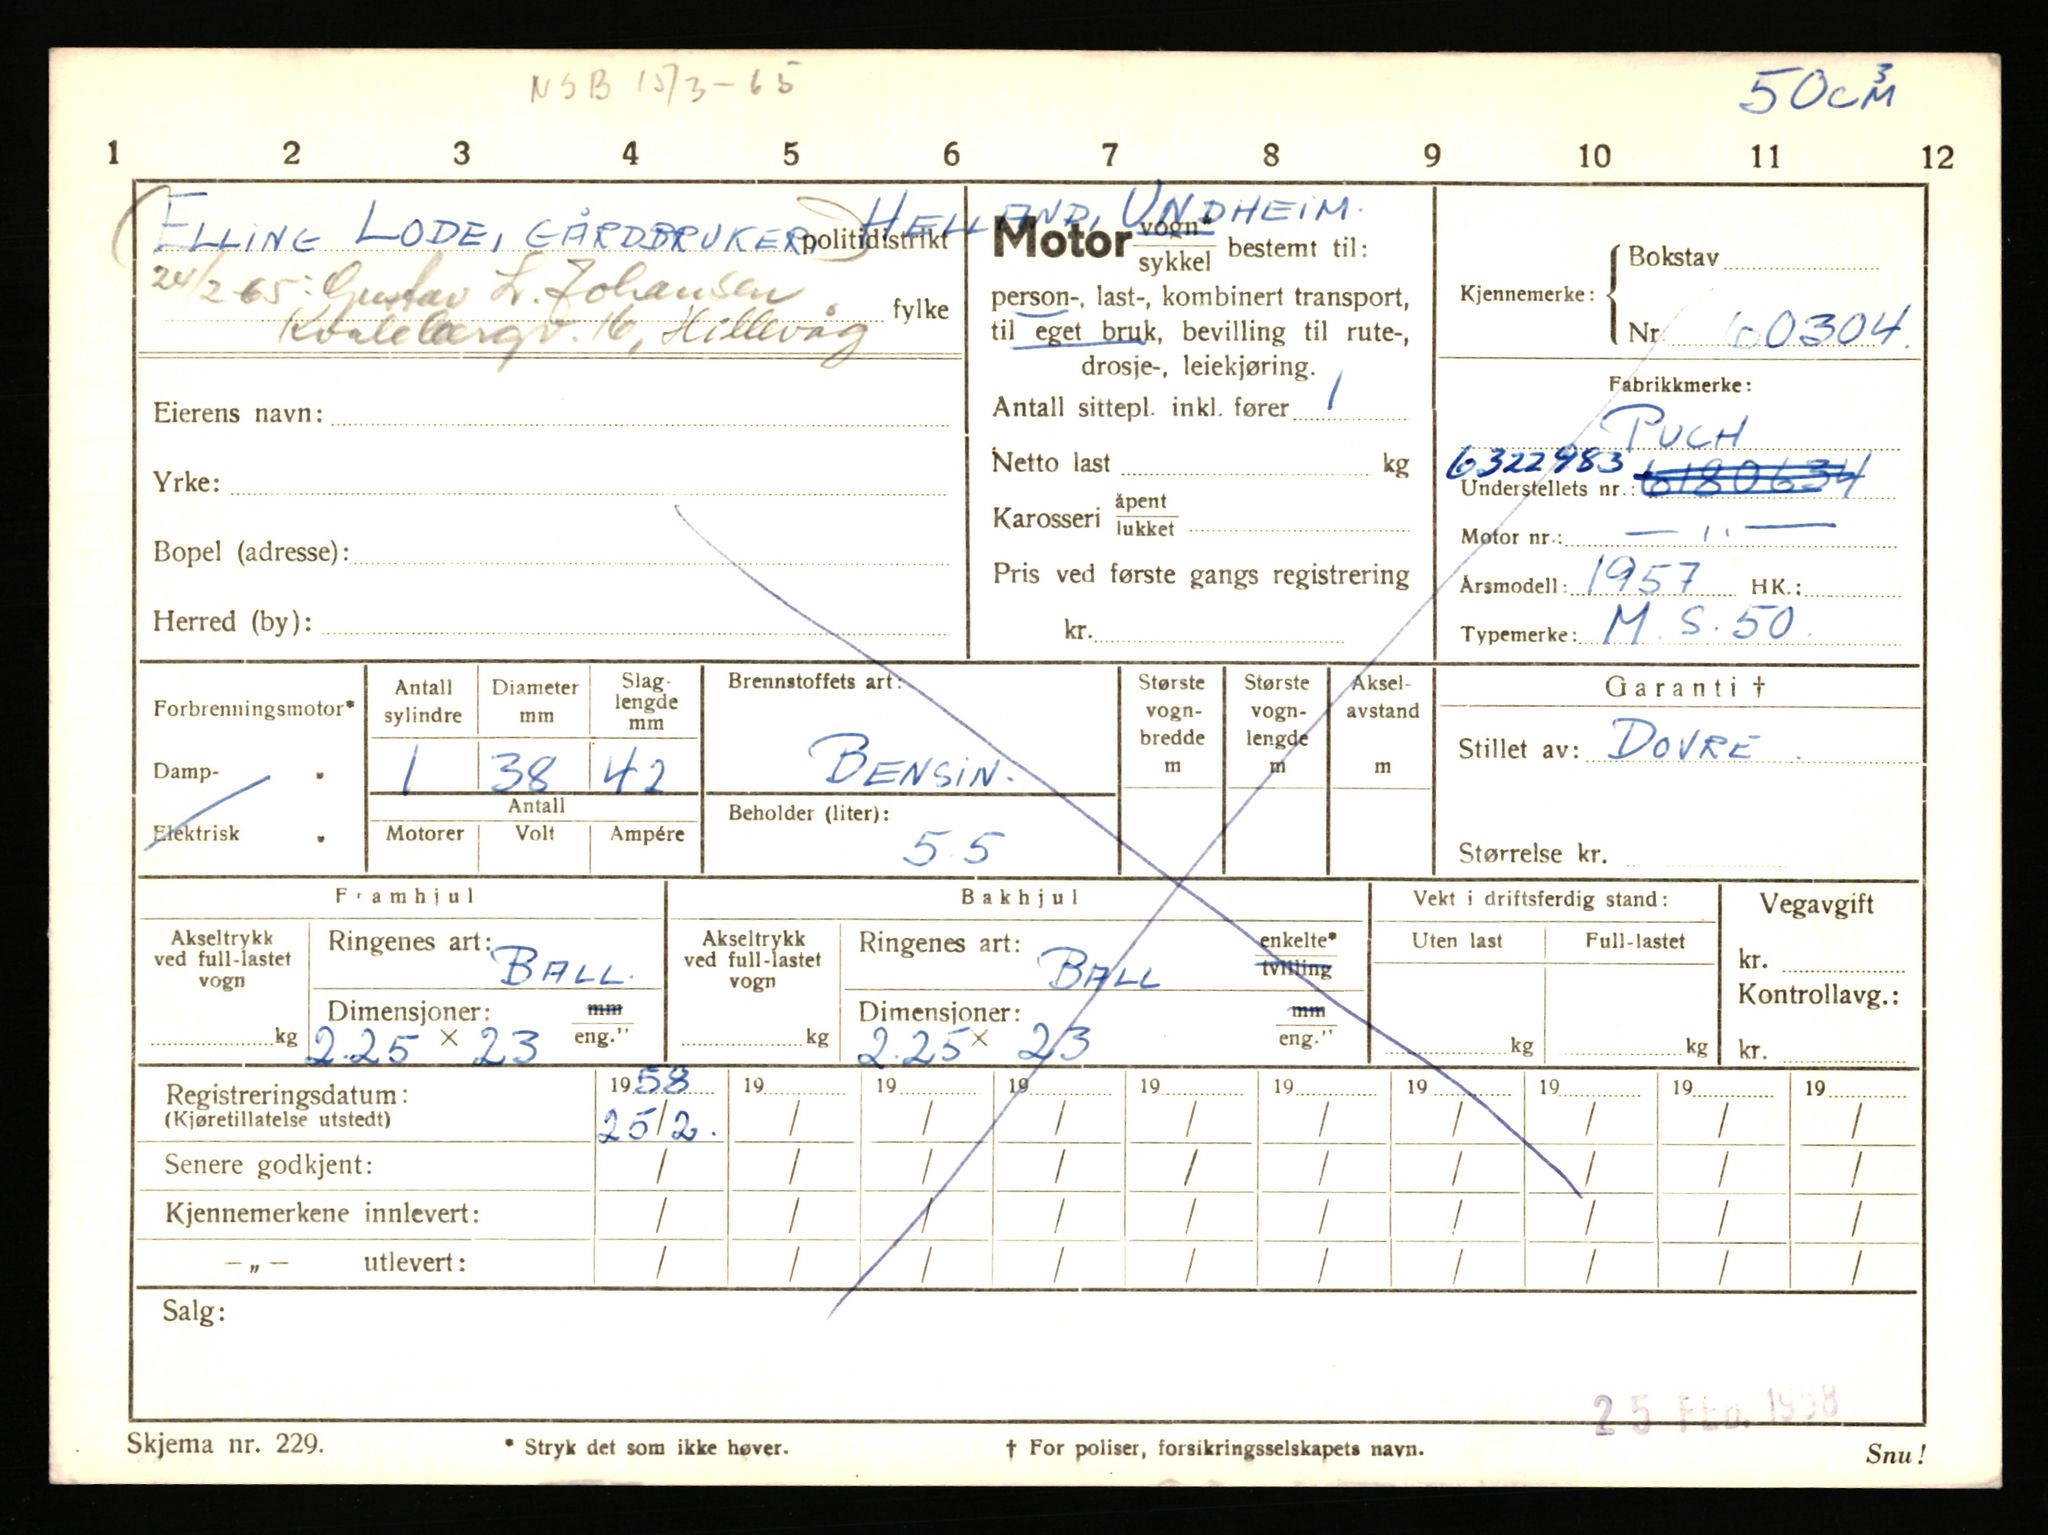 NSB 15/3-65
50 cM³
1 2 3 4 5 6 7 8 9 10 11 12
ELLING LODE, GÅRDBRUKER, HELLAND, UNDHEIM.
politidistrikt
24/2-65: Gustav L. Johansen
fylke
16, Hillevåg
Eierens navn:
Yrke:
Bopel (adresse):
Herred (by):
Motor vogn* sykkel bestemt til:
person-, last-, kombinert transport,
til eget bruk, bevilling til rute-,
drosje-, leiekjøring.
Antall sittepl. inkl. fører 1
Netto last kg
Karosseri åpent lukket
Pris ved første gangs registrering
kr.
Kjennemerke: Bokstav
Nr 60304.
Fabrikkmerke:
PUCH
6322983
Understellets nr.: 6180634
Motor nr.: — „ —
Årsmodell: 1957 HK.:
Typemerke: M. S. 50.
Forbrenningsmotor*
Damp- "
Elektrisk "
Antall sylindre Diameter mm Slag-lengde mm
1 38 42
Antall
Motorer Volt Ampére
Brennstoffets art:
BENSIN.
Beholder (liter):
5.5
Største vogn-bredde m
Største vogn-lengde m
Aksel-avstand m
Garanti †
Stillet av: DOVRE.
Størrelse kr.
Framhjul
Akseltrykk ved full-lastet vogn
kg
Ringenes art: BALL.
Dimensjoner: mm eng."
2.25 × 23
Bakhjul
Akseltrykk ved full-lastet vogn
kg
Ringenes art: BALL
enkelte* tvilling
Dimensjoner: mm eng."
2.25 × 23
Vekt i driftsferdig stand:
Uten last Full-lastet
kg kg
Vegavgift
kr.
Kontrollavg.:
kr.
Registreringsdatum: 1958 19 19 19 19 19 19 19 19 19
(Kjøretillatelse utstedt) 25/2. / / / / / / / / /
Senere godkjent: / / / / / / / / / /
Kjennemerkene innlevert: / / / / / / / / / /
— „ — utlevert: / / / / / / / / / /
Salg:
25 FEB. 1958
Skjema nr. 229.
* Stryk det som ikke høver.
† For poliser, forsikringsselskapets navn.
Snu!